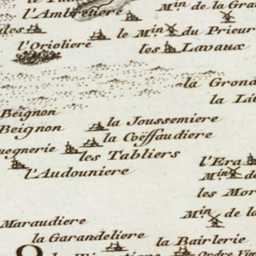 l'Ambretiere
Min de la Gra
les
le Min du Prieur
l'Orioliere
les Lavaux
la Grond
Beignon
la Joussemiere
Beignon
la Coëssaudiere
uegnerie
les Tabliers
l'Audouniere
l'Era
Min de
les Mor
Maraudiere
Min de la
la Garandeliere
la Bairlerie